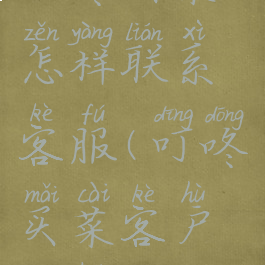 zěn yàng lián xì
怎样联系
kè fú dīng dōng
客服(叮咚
mǎi cài kè hù
买菜客户